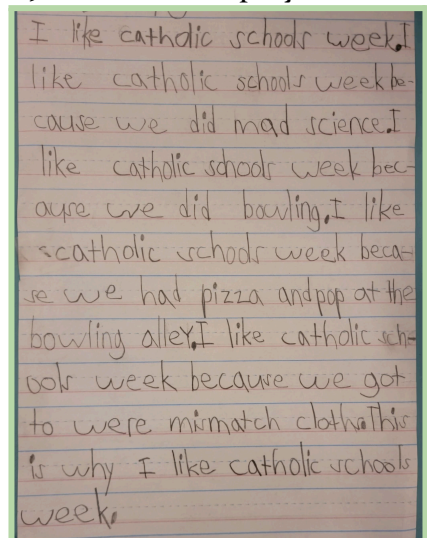 I like catholic schools week.I
like catholic schools week be-
cause we did mad science.I
like catholic schools week bec-
ause we did bowling.I like
catholic schools week beca-
se we had pizza and pop at the
bowling alley.I like catholic sch-
ools week because we got
to were mismatch cloths.This
is why I like catholic schools
week.